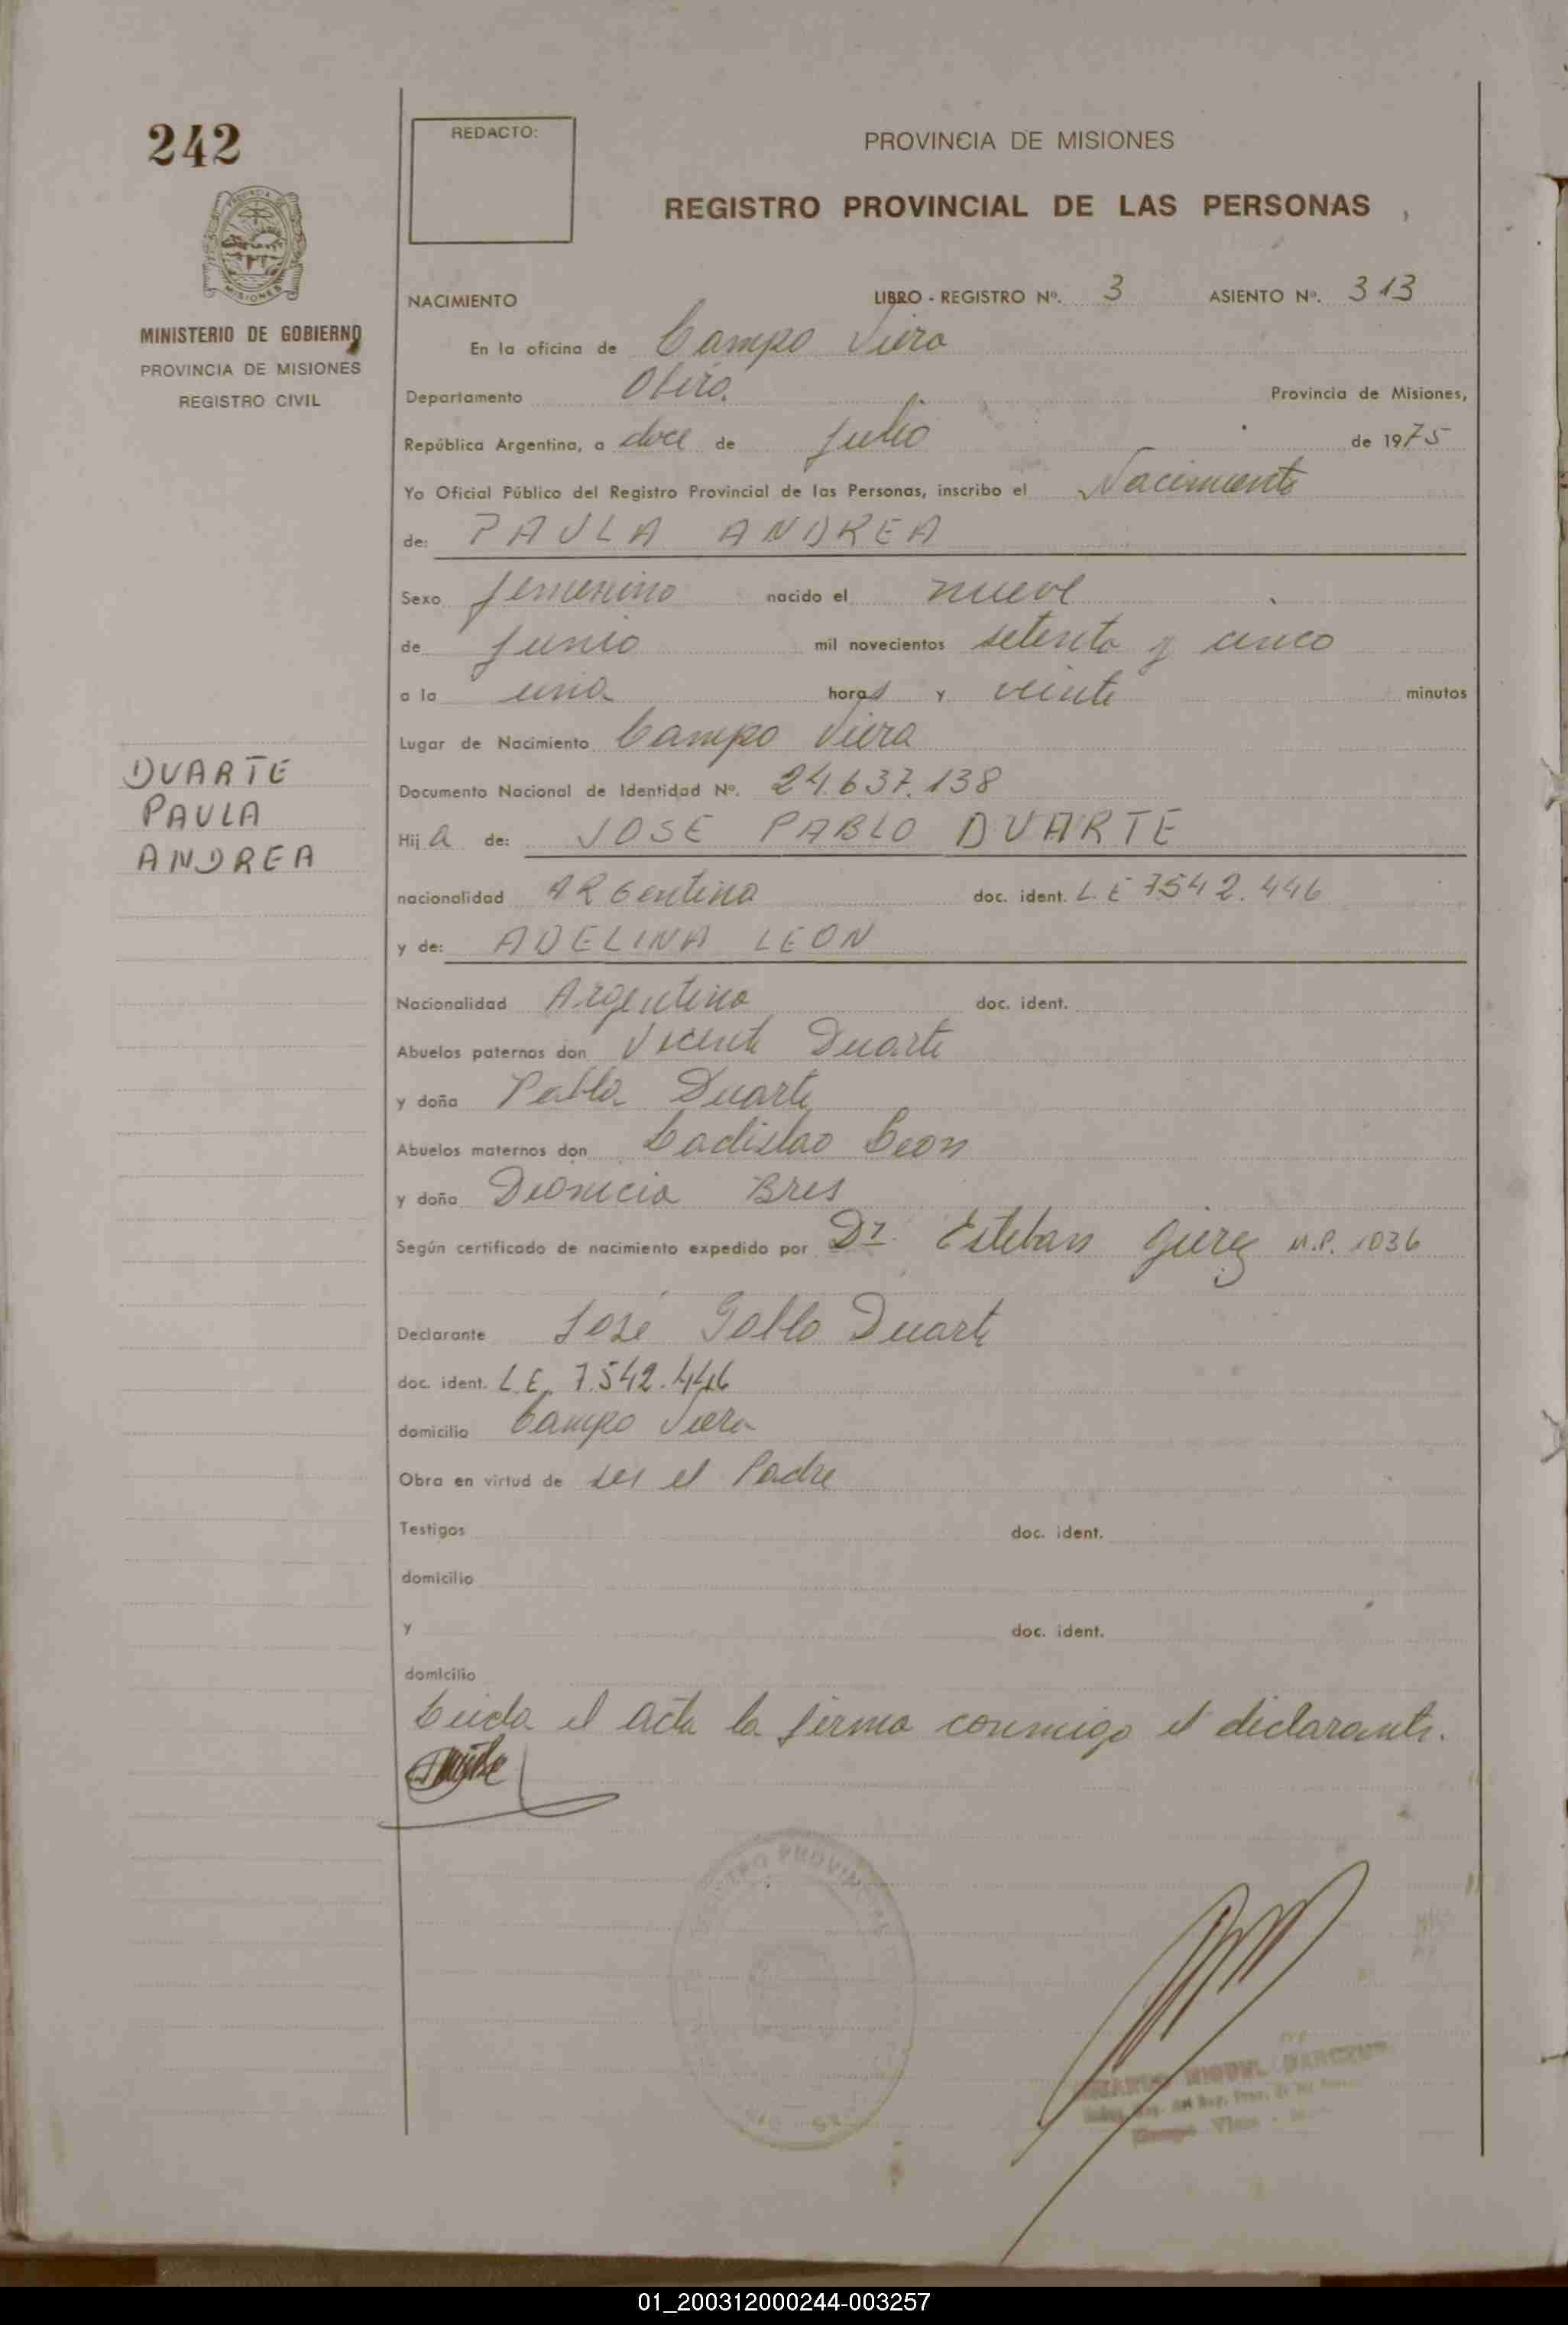 242
REDACTO:
PROVINCIA DE MISIONES
REGISTRO PROVINCIAL DE LAS PERSONAS
MISIONES
MINISTERIO DE GOBIERNO
PROVINCIA DE MISIONES
REGISTRO CIVIL
NACIMIENTO LIBRO - REGISTRO Nº. 3 ASIENTO Nº. 313
En la oficina de Campo Viera
Departamento Oberá. Provincia de Misiones,
República Argentina, a doce de Julio de 1975
Yo Oficial Público del Registro Provincial de las Personas, inscribo el Nacimiento
de: PAULA ANDREA
Sexo femenino nacido el nueve
de Junio mil novecientos setenta y cinco
a la una horas y veinte minutos
Lugar de Nacimiento Campo Viera
Documento Nacional de Identidad Nº. 24.637.138
DUARTE
PAULA
ANDREA
Hija de: JOSE PABLO DUARTE
nacionalidad ARGentina doc. ident. L.E 7.542.446
y de: ADELINA LEON
Nacionalidad Argentina doc. ident.
Abuelos paternos don Vicente Duarte
y doña Pabla Duarte
Abuelos maternos don Ladislao Leon
y doña Dionicia Bres
Según certificado de nacimiento expedido por Dr. Esteban M.P. 1036
Declarante José Pablo Duarte
doc. ident. L.E. 7.542.446
domicilio Campo Viera
Obra en virtud de ser el Padre
Testigos doc. ident.
domicilio
y doc. ident.
domicilio
Leida el acta la firma conmigo el declarante.
01_200312000244-003257